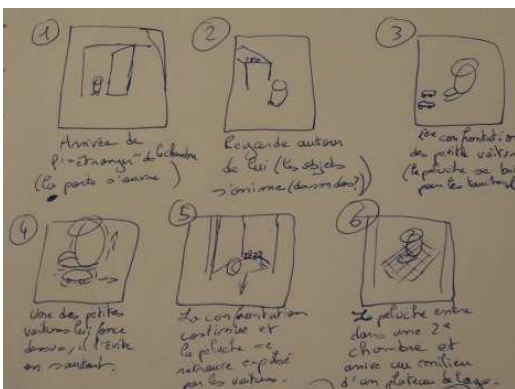 1
Arrivée de
l'"étranger" de la chambre
(la porte s'ouvre)
2
Regarde autour
de lui (les objets
s'anime
3
1ère confrontation
des petite voitures
(la peluche se
par les
4
Une des petites
voitures lui fonce
dessus, il l'évite
en sautant.
5
La confrontation
continue et
la peluche se
retrouve
par les voitures.
6
La peluche entre
dans une 2e
chambre et
arrive au milieu
d'un plateau de